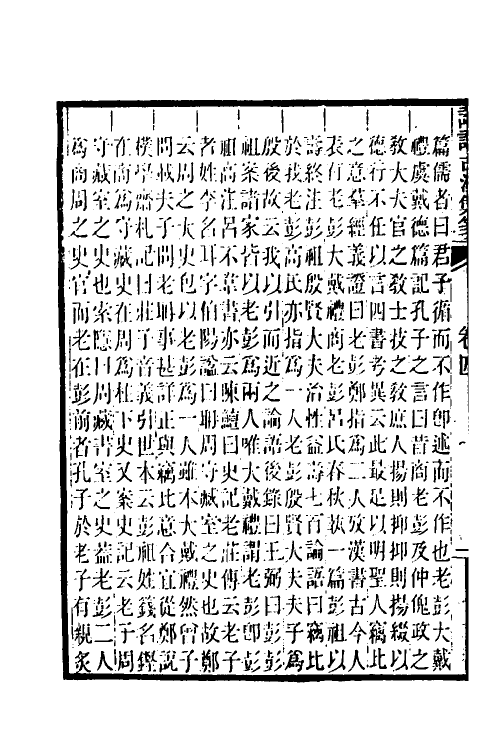 篇儒者曰君子循而不作卽述而不作也老彭大戴
禮虞戴德篇記孔子之言曰昔商老彭及仲傀政之
敎大夫官之敎士技之敎庶人揚則抑抑則揚綴以
德行不任以言四書考異云此最足以明聖人竊比
之意羣經義證曰老彭鄭指爲二人攷漢書古今人
表有老彭大戴禮商老彭呂氏春秋執一篇彭祖以
壽終注彭祖殷賢大夫治性益壽七百論語曰竊比
於我老彭高氏亦指爲一人老彭殷賢大夫夫子爲
殷後故云我以引而近之論語後錄曰王弼曰老彭
祖案諸家皆以老彭爲兩人唯大戴禮謂老彭卽彭
祖高注呂不韋書亦云陳鱣曰史記老莊傳云老子
者姓李名耳字伯陽謚曰耼周守藏室之史也故鄭
云周之大史包以老彭爲一人雖本大戴禮然曾子
問載夫子問老耼事甚詳正與竊比意合宜從鄭說
樸學齋札記曰莊子音義引世本云彭祖姓籛名鏗
在商爲守藏史在周爲柱下史又案史記云老子周
守藏室之史也索隱曰周藏書室之史葢老彭二人
爲商周之史官而老在彭前者孔子於老子有親炙
卷四